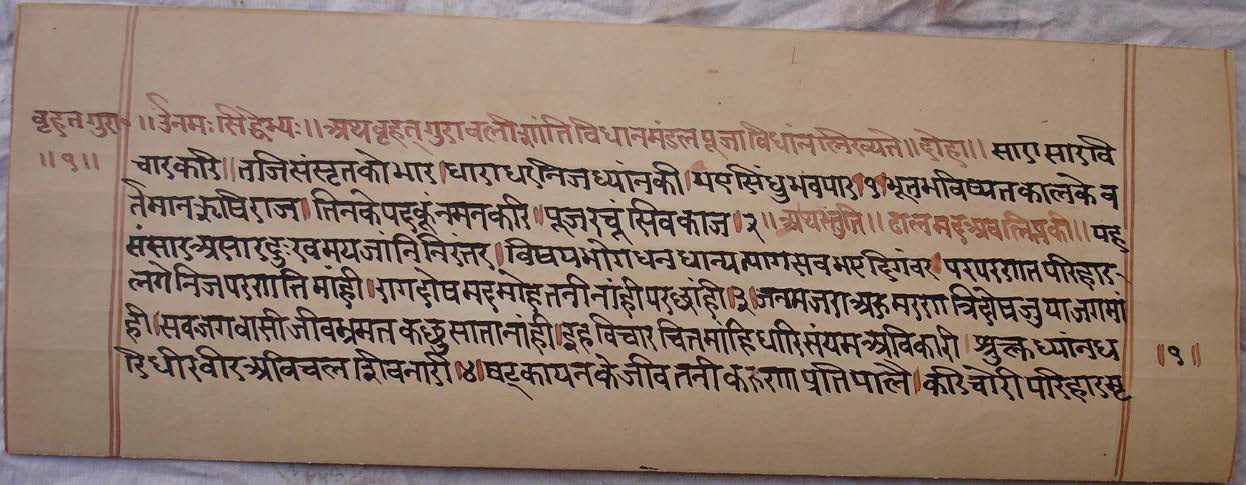 वृहत गुरा॰
॥१॥
॥ॐनमः सिद्धेभ्यः॥ अथ वृहत् गुरावली शांति विधान मंडल पूजा विधांन लिख्यते॥ दोहा॥ सार असार वि
चार करि॥ तजि संस्कृत को भार। धाराधर निज ध्यांन की। भए सिंधु भव पार १। भूत भविष्यत काल के व
र्तमान ऋषिराज। तिनके पद कूं नमन करि। पूज रचूं सिव काज।२॥ अथ स्तुति॥ ढाल मद अवलिप्त की॥ यह
संसार असार दुःखमय जांनि निरंतर। विषय भोग धन धान्य त्याग सब भए दिगंबर। पर परणति परिहार
लगे निज परणति मांही। राग दोष मद मोह तनी नांही परछांही।३। जनम जरा अरु मरण त्रिदोष जु या जग मां
ही। सब जगवासी जीव भ्रमत कछु साता नांही। इह विचार चित्त मांहि धारि संयम अविकारी। श्रुक्ल ध्यांन ध
रि धीर वीर अविचल शिवनारी।४। षट्कायन के जीव तनी करुणा प्रतिपालै। करि चोरी परिहार मृ
॥१॥